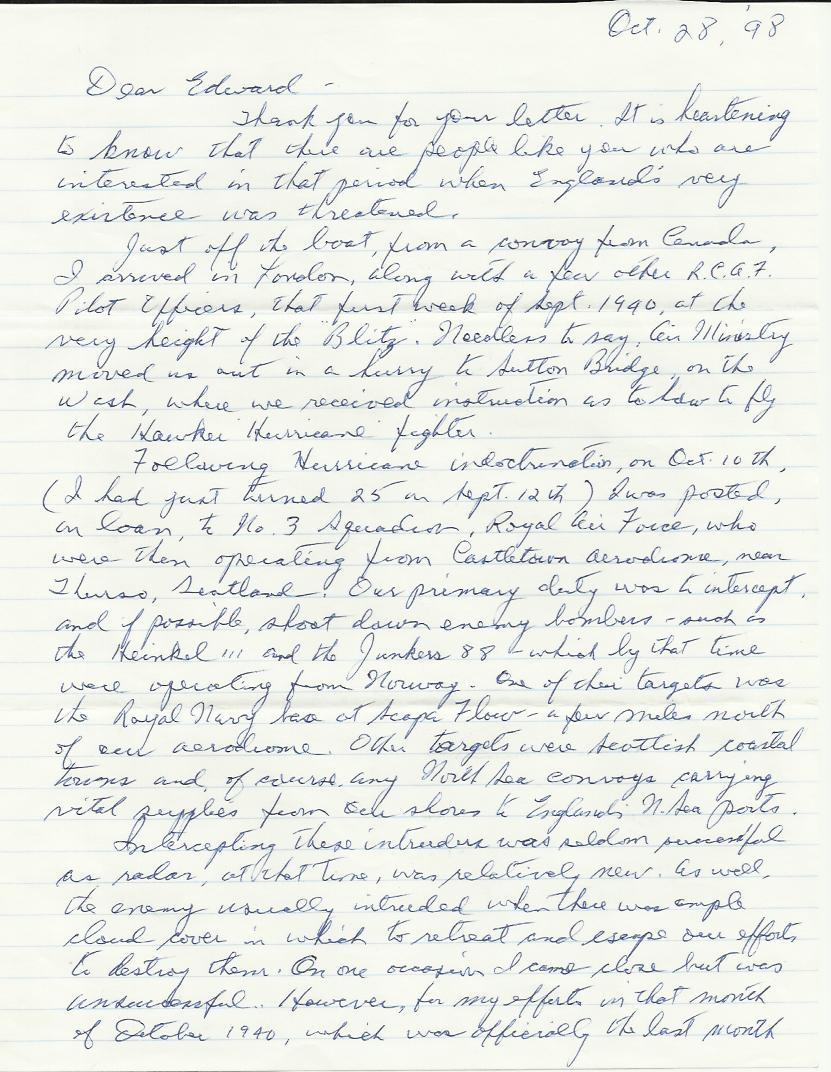 Oct. 28, '98
Dear Edward -
Thank you for your letter. It is heartening
to know that there are people like you who are
interested in that period when England's very
existence was threatened.
Just off the boat, from a convoy from Canada,
I arrived in London, along with a few other R.C.A.F.
Pilot Officers, that first week of Sept. 1940, at the
very height of the "Blitz". Needless to say, Air Ministry
moved us out in a hurry to Sutton Bridge, on the
Wash, where we received instruction as to how to fly
the 'Hawker Hurricane' fighter.
Following Hurricane indoctrination, on Oct. 10th,
(I had just turned 25 on Sept. 12th) I was posted,
on loan, to No. 3 Squadron, Royal Air Force, who
were then operating from Castletown aerodrome, near
Thurso, Scotland. Our primary duty was to intercept,
and if possible, shoot down enemy bombers - such as
the Heinkel 111 and the Junkers 88 - which by that time
were operating from Norway. One of their targets was
the Royal Navy base at Scapa Flow - a few miles north
of our aerodrome. Other targets were Scottish coastal
towns and, of course, any North Sea convoys carrying
vital supplies from our shores to England's N. Sea ports.
Intercepting these intruders was seldom successful
as radar, at that time, was relatively new. As well,
the enemy usually intruded when there was ample
cloud cover in which to retreat and escape our efforts
to destroy them. On one occasion I came close but was
unsuccessful. However, for my efforts in that month
of October 1940, which was officially the last month